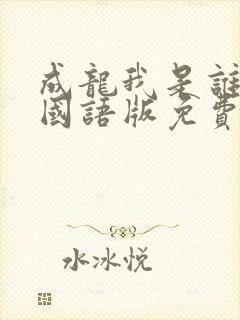 成龍我是誰
國語版免費
水冰悦